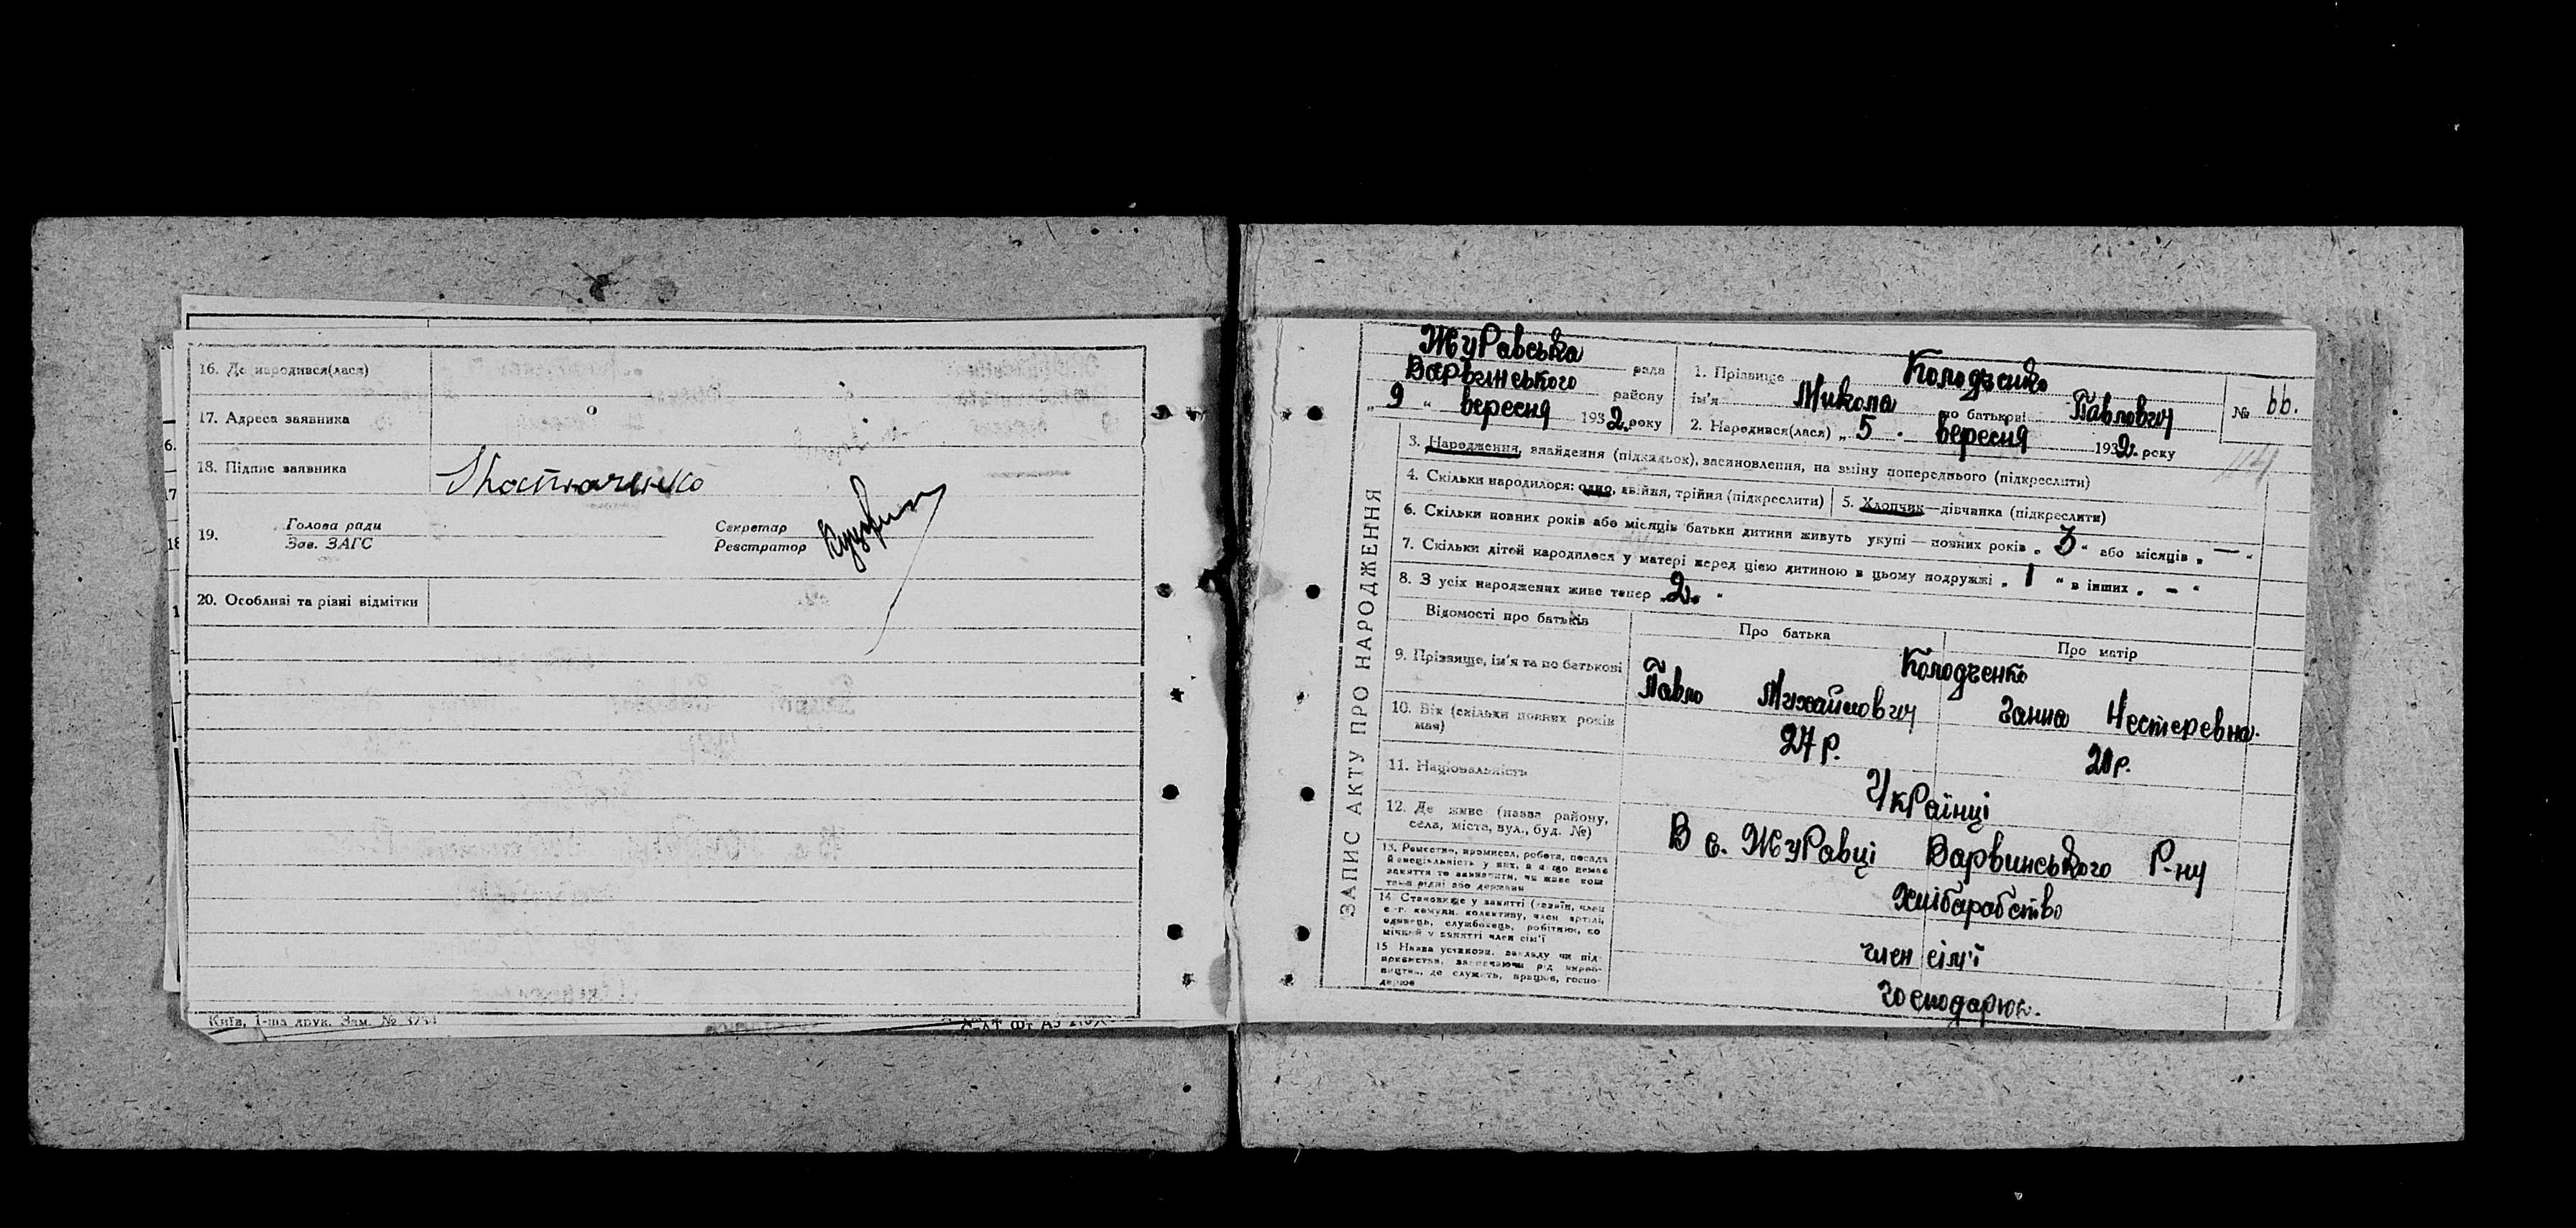 16. Де народився(лася)
17. Адреса заявника
18. Підпис заявника
19. Голова ради
Зав. ЗАГС
Секретар
Реєстратор
20. Особливі та різні відмітки
Київ, 1-ша друк. Зам. №
ЗАПИС АКТУ ПРО НАРОДЖЕННЯ
Журавська рада
Варвинського району
„ 9 “ вересня 1932 року
1. Прізвище Колодченко
ім'я Микола по батькові Павлович
2. Народився(лася) „ 5 “ вересня 1932 року
№ 66.
3. Народження, знайдення (підкидьок), засиновлення, на зміну попереднього (підкреслити)
4. Скільки народилося: одно, двійня, трійня (підкреслити)
5. Хлопчик—дівчинка (підкреслити)
6. Скільки повних років або місяців батьки дитини живуть укупі — повних років „ 3 “ або місяців „ — “
7. Скільки дітей народилося у матері перед цією дитиною в цьому подружжі „ 1 “ в інших „ - “
8. З усіх народжених живе тепер „ 2. “
Відомості про батьків
Про батька
Про матір
9. Прізвище, ім'я та по батькові
Колодченко
Павло Михайлович
Ганна Нестеревна.
10. Вік (скільки повних років мая)
27 р.
20 р.
11. Національність
Українці
12. Де живе (назва району,
села, міста, вул., буд. №)
В с. Журавці Варвинського Р-ну
13. Ремество, промисел, робота, посада
й спеціяльність у них, а якщо немає
заняття то зазначити, чи живе кош
тами рідні або держави
Хліборобство
14. Становище у занятті (хазяїн, член
с.-г. комуни, колективу, член артілі,
одинець, службовець, робітник, по
мічний у занятті член сім'ї
член сім'ї
15. Назва установи, закладу чи під-
приємства, зазначаючи рід вироб-
ництва, де служить, працює, госпо-
дарює
господарює.